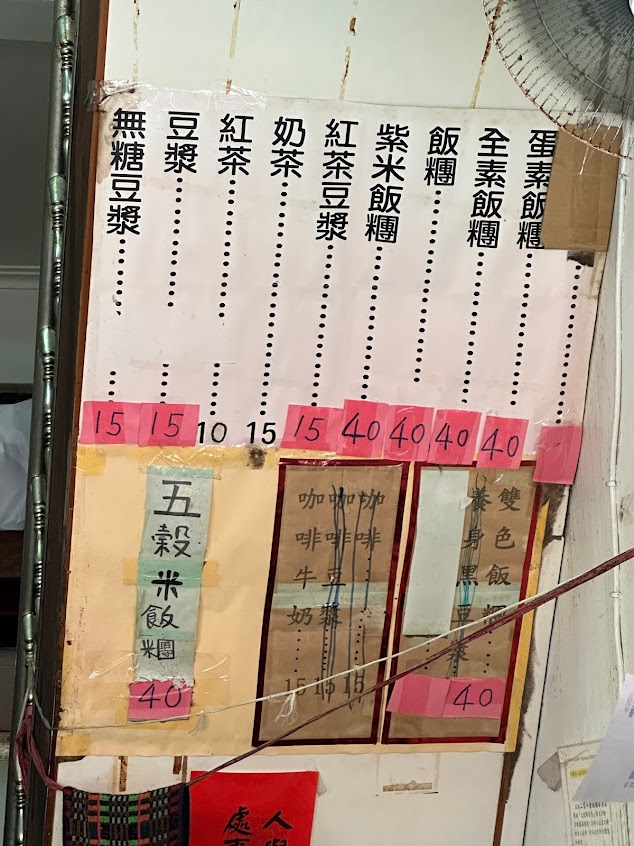 蛋素飯糰 40
全素飯糰 40
飯糰 40
紫米飯糰 40
紅茶豆漿 15
奶茶 15
紅茶 10
豆漿 15
無糖豆漿 15
雙色飯糰 40
養身黑豆漿
咖啡 15
咖啡豆漿 15
咖啡牛奶 15
五穀米飯糰 40
人
處